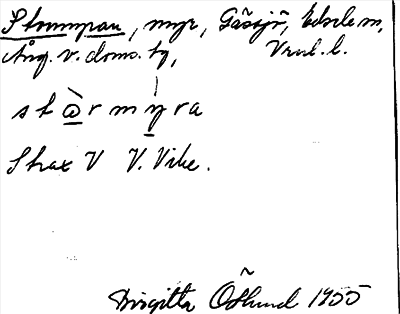 Stormyran, myr, Gåssjö, Edsele sn,
Ång. v. doms. tg, Vrul. l.
stὼ̲rmý̲ra
Strax V V. Vike.
Birgitta Östlund 1955